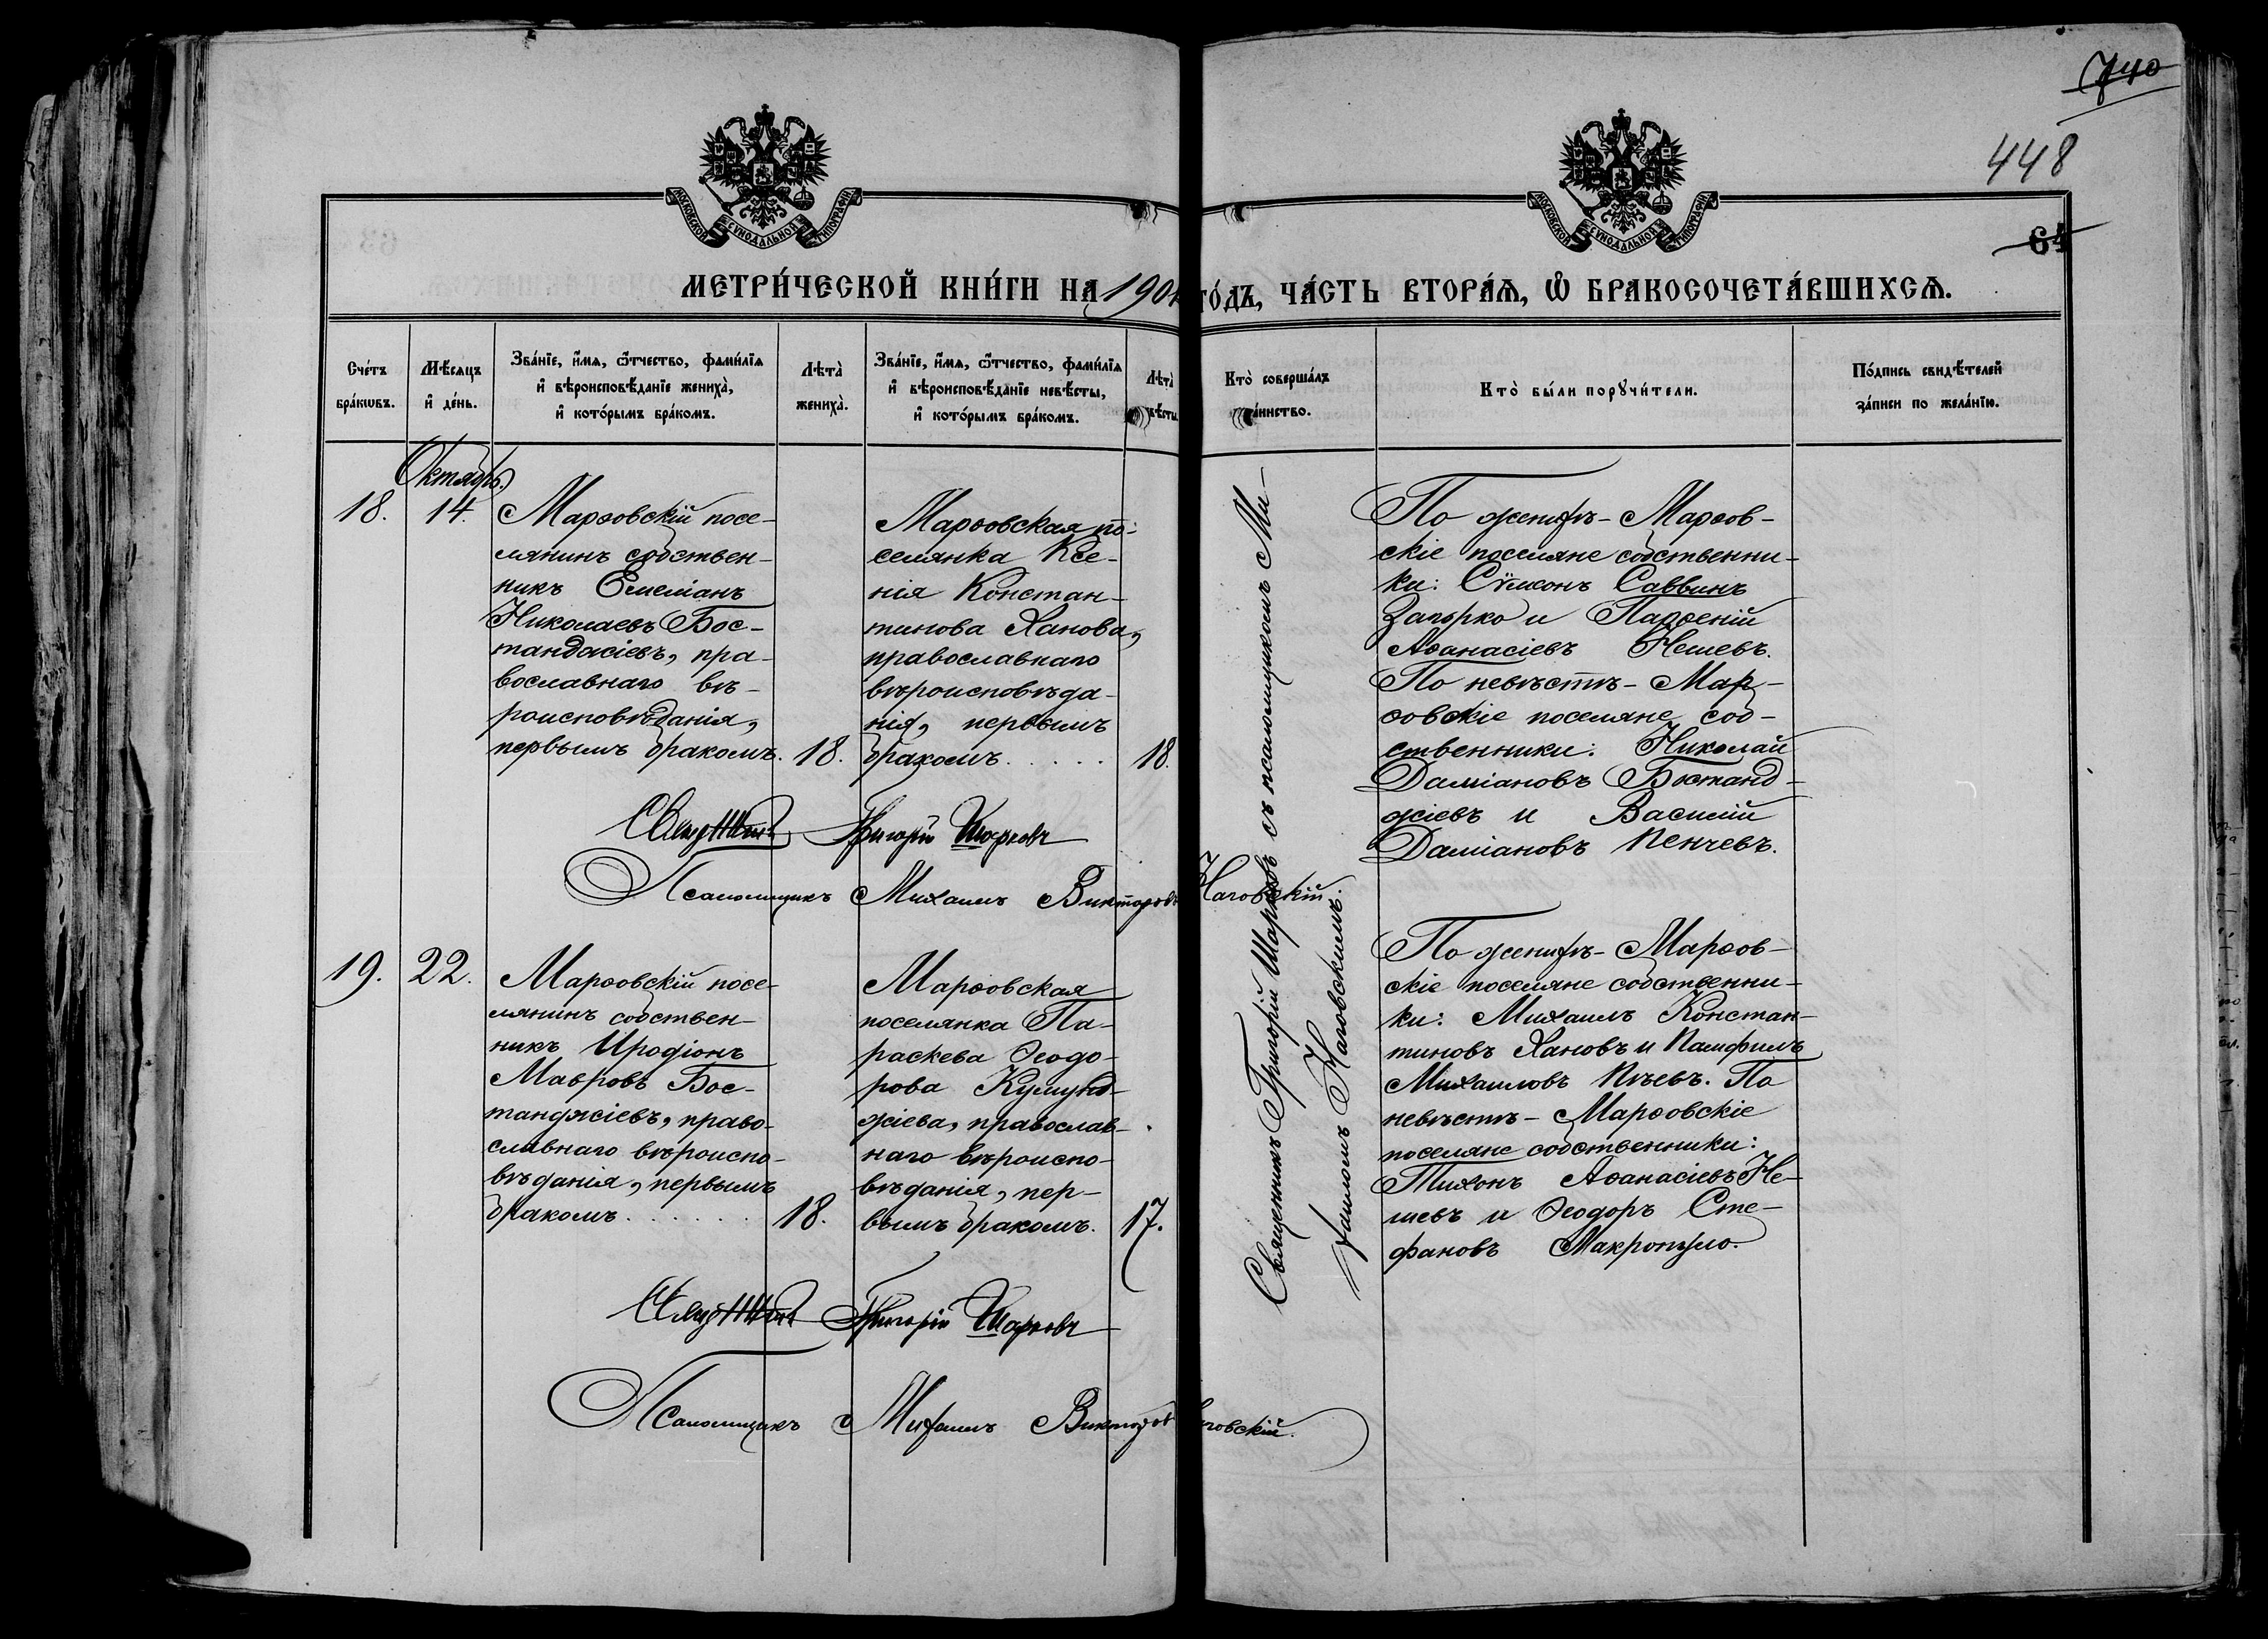 740
448
64
МОСКОВСКОЙ СѴНОДАЛЬНОЙ ТИПОГРАФІИ
МОСКОВСКОЙ СѴНОДАЛЬНОЙ ТИПОГРАФІИ
МЕТРИ́ЧЕСКОЙ КНИ́ГИ НА 190 го́дъ, ЧА́СТЬ ВТОРА́Ѧ, Ѽ БРАКОСОЧЕТА́ВШИХСѦ.
Сче́тъ
бра́кѡвъ.
Мѣ́сяцъ
и҆ де́нь.
Зва́нїе, и҆́мѧ, ѻ҆́тчество, фами́лїѧ
и҆ вѣроисповѣ́данїе жениха̀,
и҆ кото́рымъ бра́комъ.
Лѣта̀
жениха̀.
Зва́нїе, и҆́мѧ, ѻ҆́тчество, фами́лїѧ
и҆ вѣроисповѣ́данїе невѣ́сты,
и҆ кото́рымъ бра́комъ.
Лѣта̀
вѣ́сты
Кто̀ соверша́лъ
та́инство.
Кто̀ бы́ли порꙋчи́тели.
По́дпись свидѣ́телей
за́писи по жела́нїю.
Октябрь.
18.
14.
Марѳовскій посе-
лянинъ собствен-
никъ Емеліанъ
Николаевъ Бос-
танджіевъ, пра-
вославнаго вѣ-
роисповѣданія,
первымъ бракомъ.
18.
Марѳовская по-
селянка Ксе-
нія Констан-
тинова Ханова,
православнаго
вѣроисповѣда-
нія, первымъ
бракомъ.....
18.
Священникъ Григорій Шарковъ съ псаломщикомъ Ми-
хаиломъ Наговскимъ.
По женихѣ - Марѳов-
скіе поселяне собственни-
ки: Сѵмеонъ Саввинъ
Загорко и Парѳеній
Аѳанасіевъ Нешевъ.
По невѣстѣ - Мар-
ѳовскіе поселяне соб-
ственники: Николай
Даміановъ Бостанд-
жіевъ и Василій
Даміановъ Пенчевъ.
Священникъ Григорій Шарковъ
Псаломщикъ Михаилъ Викторовъ Наговскій.
19.
22.
Марѳовскій посе-
лянинъ собствен-
никъ Иродіонъ
Мавровъ Бос-
танджіевъ, право-
славнаго вѣроиспо-
вѣданія, первымъ
бракомъ......
18.
Марѳовская
поселянка Па-
раскева Ѳеодо-
рова Куюмд-
жіева, православ-
наго вѣроиспо-
вѣданія, пер-
вымъ бракомъ.
17.
По женихѣ - Марѳов-
скіе поселяне собственни-
ки: Михаилъ Констан-
тиновъ Хановъ и Памфилъ
Михаиловъ Пѣевъ. По
невѣстѣ - Марѳовскіе
поселяне собственники:
Тихонъ Аѳанасіевъ Не-
шевъ и Ѳеодоръ Сте-
фановъ Макропуло.
Священникъ Григорій Шарковъ
Псаломщикъ Михаилъ Викторов говскій.